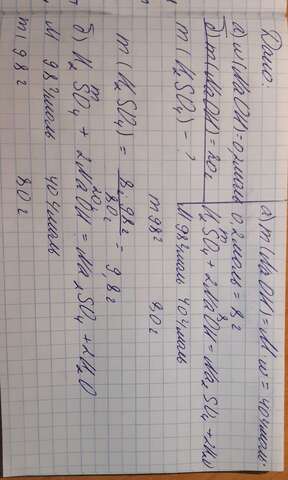 Дано:
а) ω(NaOH)=0,2моль
б) m(NaOH)=20г
m(H₂SO₄) - ?
а) m(NaOH)=M ω = 40г/моль·
0,2моль = 8г
m 8
H₂SO₄ + 2NaOH = Na₂SO₄ + 2H₂O
M 98г/моль 40г/моль
m 98г 80г
m(H₂SO₄) = 8г·98г / 80г = 9,8г
m 20
б) H₂SO₄ + 2NaOH = Na₂SO₄ + 2H₂O
M 98г/моль 40г/моль
m 98г 80г